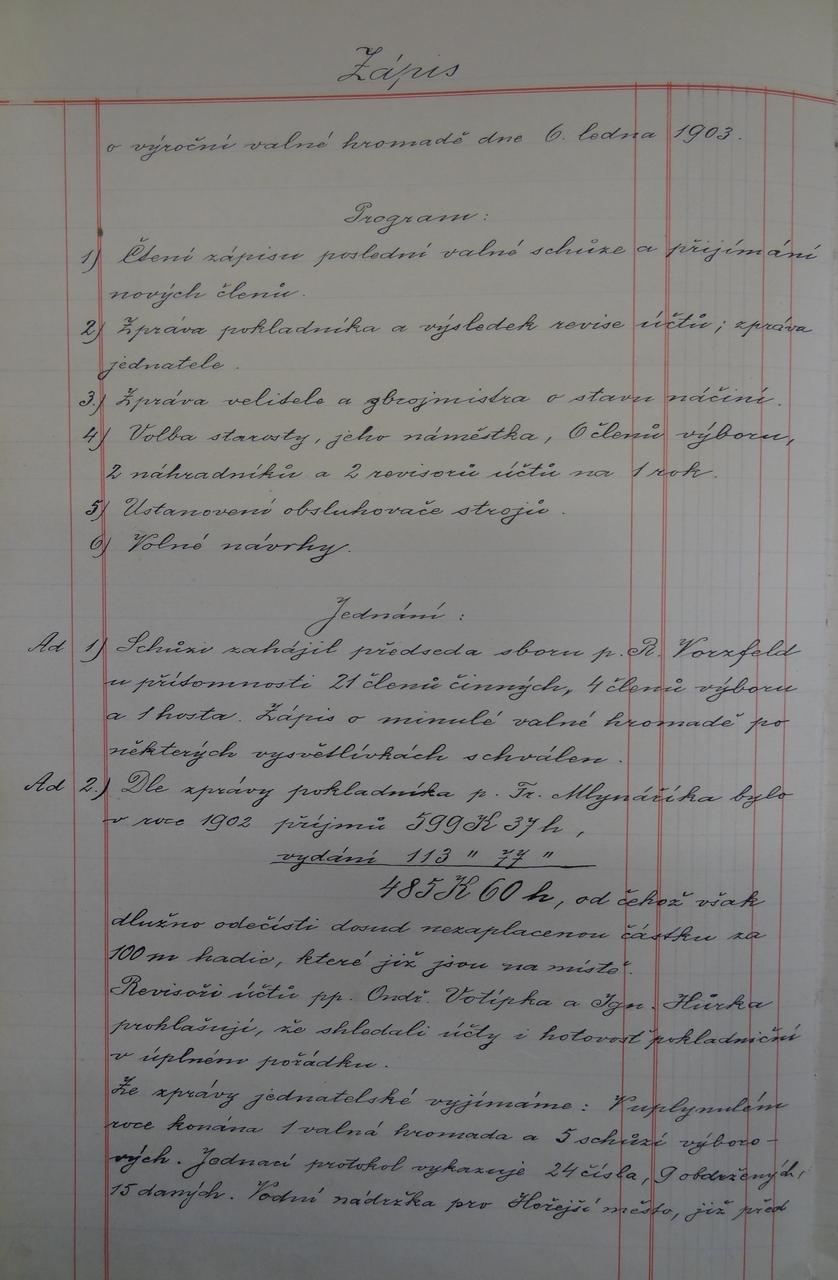 Zápis
o výroční valné hromadě dne 6. ledna 1903.
Program:
1) Čtení zápisu poslední valné schůze a přijímání
nových členů.
2) Zpráva pokladníka a výsledek revise účtů; zpráva
jednatele.
3.) Zpráva velitele a zbrojmistra o stavu náčiní.
4) Volba starosty, jeho náměstka, 6 členů výboru,
2 náhradníků a 2 revisorů účtů na 1 rok.
5) Ustanovení obsluhovače strojů.
6) Volné návrhy.
Jednání:
Ad 1) Schůzi zahájil předseda sboru p. R. Vorzfeld
u přítomnosti 21 členů činných, 4 členů výboru
a 1 hosta. Zápis o minulé valné hromadě po
některých vysvětlívkách schválen.
Ad 2.) Dle zprávy pokladníka p. Fr. Mlynáříka bylo
v roce 1902 příjmů 599 K 37 h,
vydání 113 " 77 "
485 K 60 h, od čehož však
dlužno odečísti dosud nezaplacenou částku za
100 m hadic, které již jsou na místě.
Revisoři účtů pp. Ondř. Votípka a Ign. Hůrka
prohlašují, že shledali účty i hotovosť pokladniční
v úplném pořádku.
Ze zprávy jednatelské vyjímáme: V uplynulém
roce konána 1 valná hromada a 5 schůzí výboro-
vých. Jednací protokol vykazuje 24 čísla, 9 obdržených,
15 daných. Vodní nádržka pro Hořejší město, již před